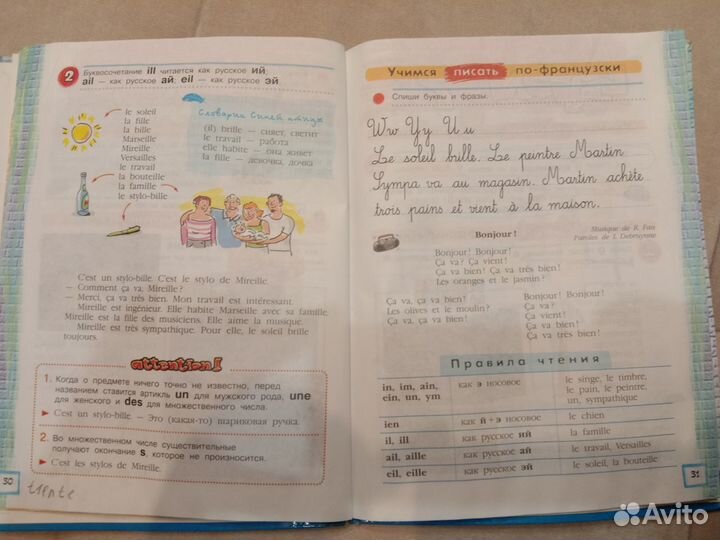 2 Буквосочетание ill читается как русское ий;
ail — как русское ай; eil — как русское эй.
le soleil
la fille
la bille
Marseille
Mireille
Versailles
le travail
la bouteille
la famille
le stylo-bille
Словарик Синей птицы
(il) brille — сияет, светит
le travail — работа
elle habite — она живёт
la fille — девочка, дочка
C'est un stylo-bille. C'est le stylo de Mireille.
— Comment ça va, Mireille?
— Merci, ça va très bien. Mon travail est intéressant.
Mireille est ingénieur. Elle habite Marseille avec sa famille.
Mireille est la fille des musiciens. Elle aime la musique.
Mireille est très sympathique. Pour elle, le soleil brille
toujours.
attention!
1. Когда о предмете ничего точно не известно, перед
названием ставится артикль un для мужского рода, une
для женского и des для множественного числа.
C'est un stylo-bille. — Это (какая-то) шариковая ручка.
2. Во множественном числе существительные
получают окончание s, которое не произносится.
C'est les stylos de Mireille.
30
Учимся писать по-французски
Спиши буквы и фразы.
Ww Yy Uu
Le soleil brille. Le peintre Martin
Sympa va au magasin. Martin achète
trois pains et vient à la maison.
Musique de R. Fau
Paroles de I. Debruynne
Bonjour!
Bonjour! Bonjour!
Ça va? Ça vient!
Ça va bien! Ça va très bien!
Les oranges et le jasmin?
Ça va, ça va bien!
Les olives et le moulin?
Ça va, ça va bien!
Bonjour! Bonjour!
Ça va?
Ça vient!
Ça va bien!
Ça va très bien!
Правила чтения
in, im, ain,
ein, un, ym
как э носовое
le singe, le timbre,
le pain, le peintre,
un, sympathique
ien как й+э носовое le chien
il, ill как русское ий la famille
ail, aille как русское ай le travail, Versailles
eil, eille как русское эй le soleil, la bouteille
31
Avito